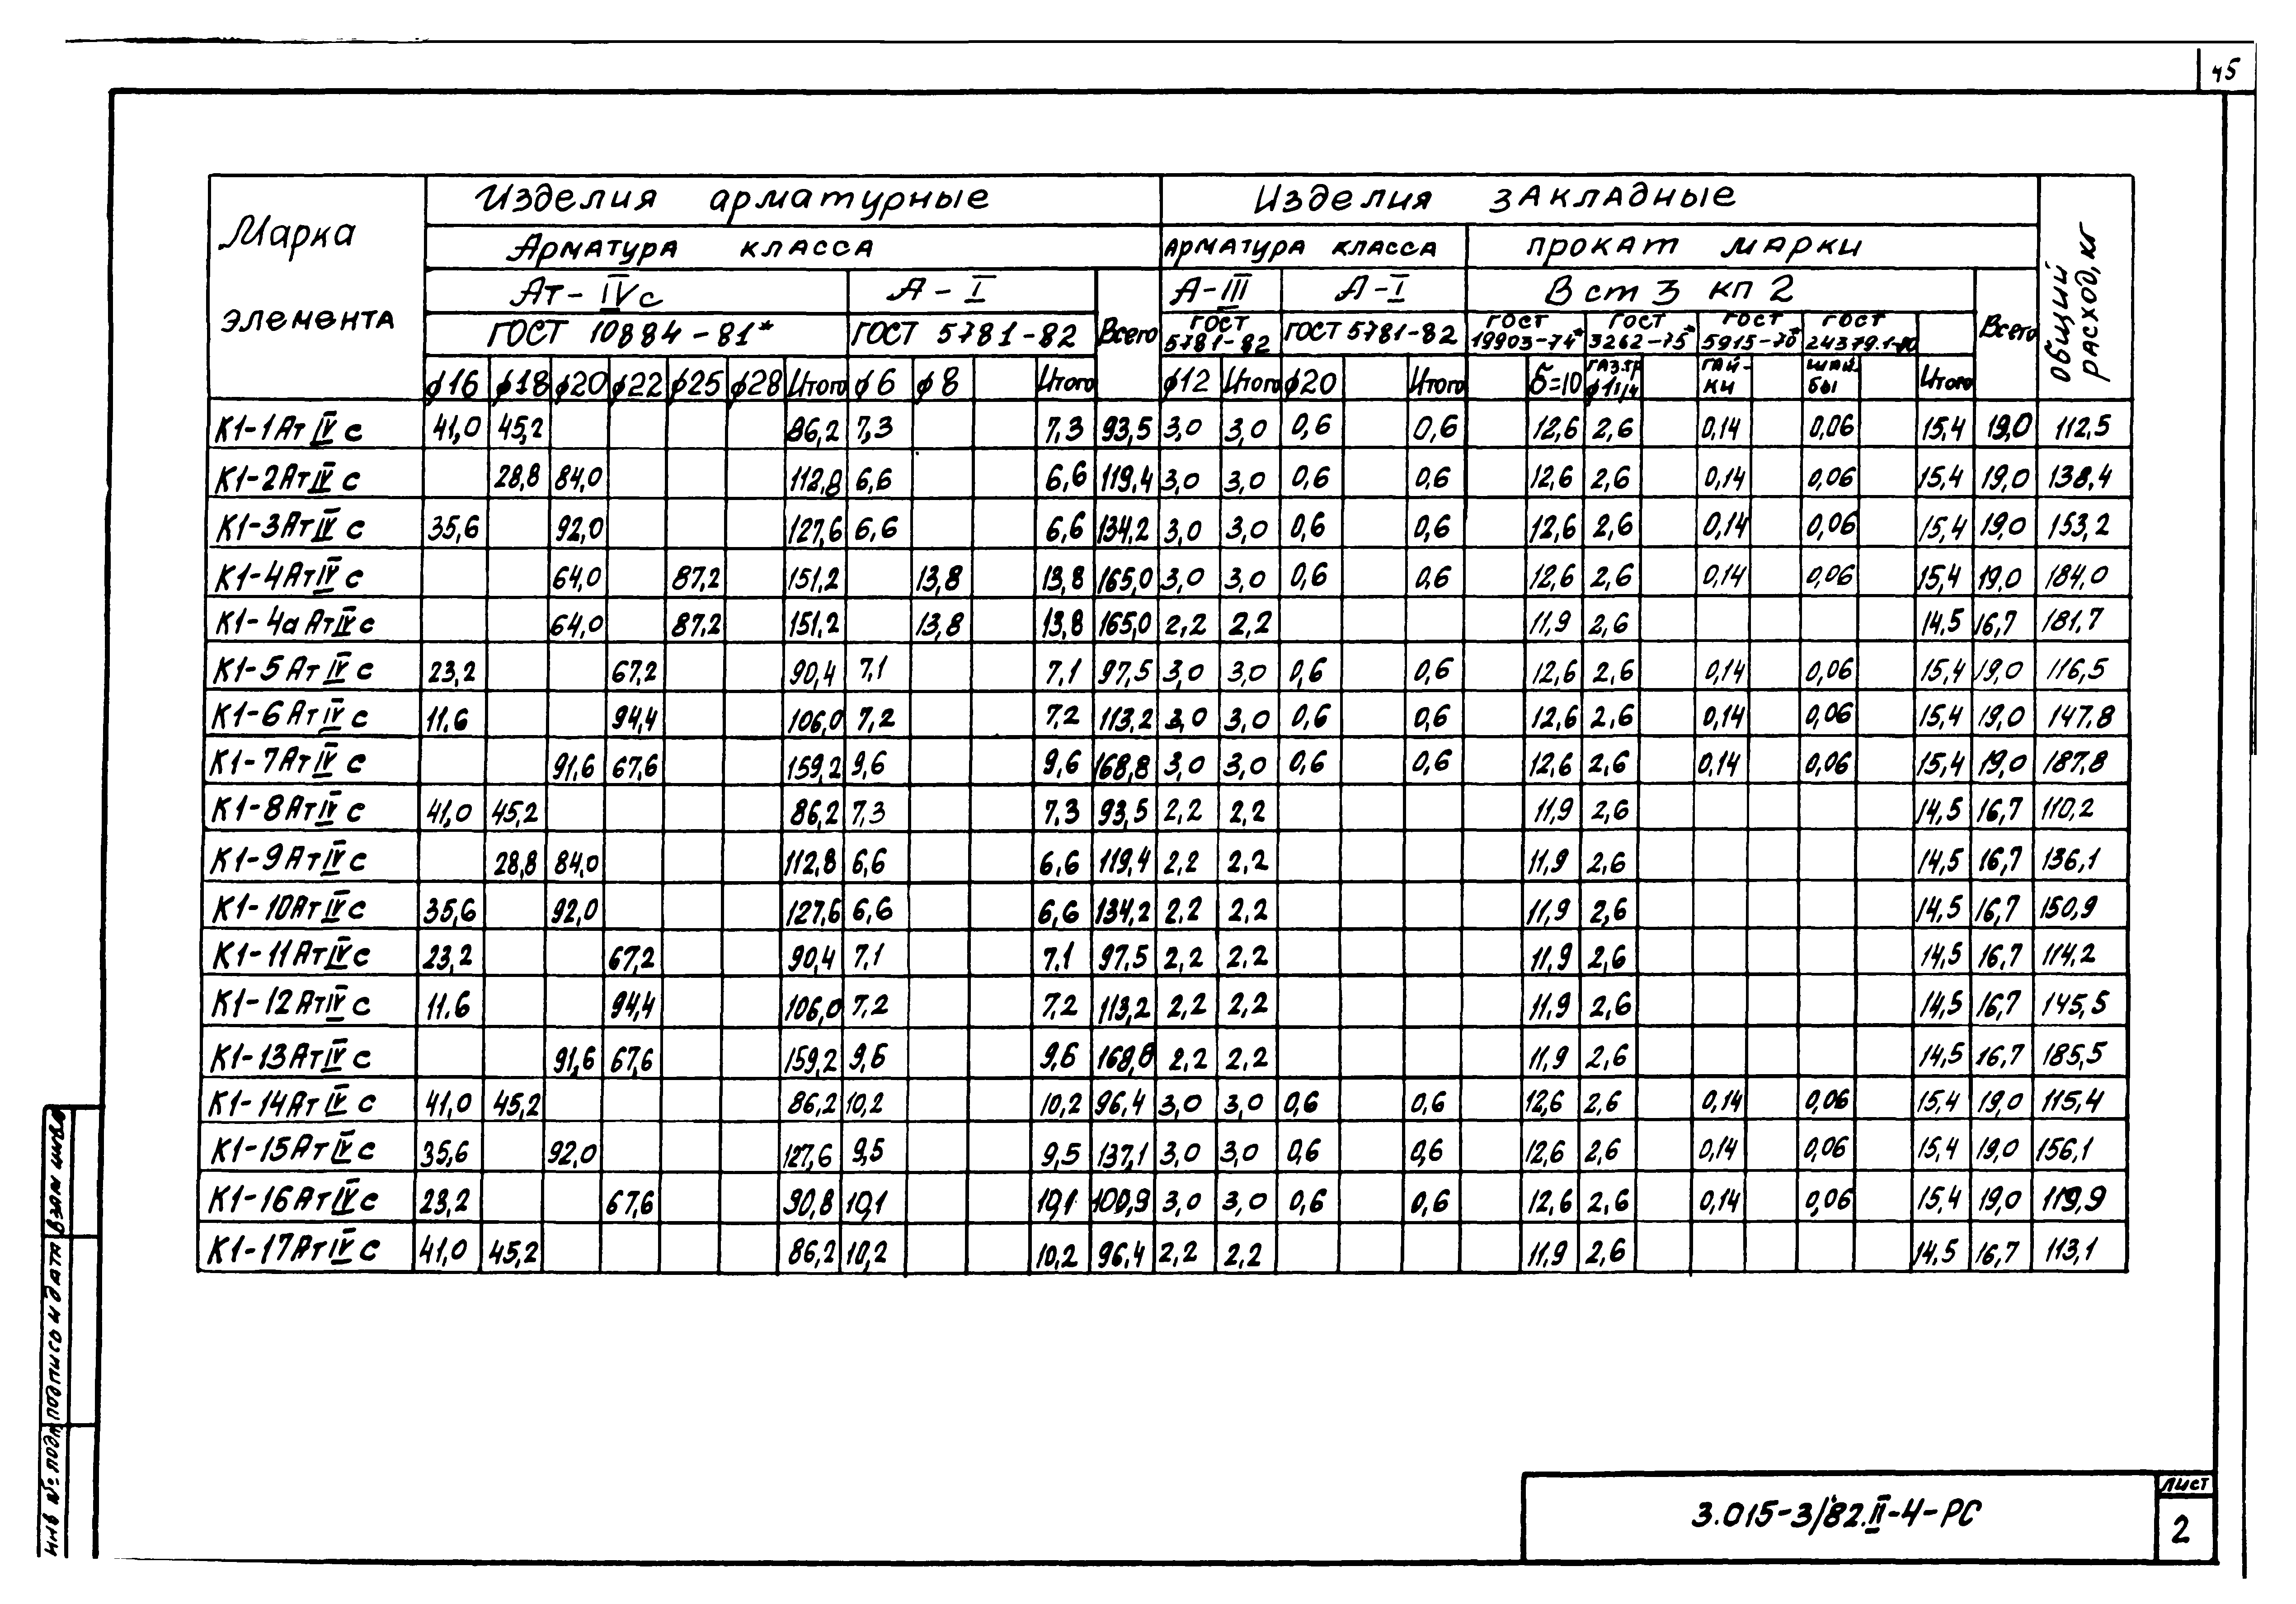 45
Марка элемента
Изделия арматурные
Изделия закладные
Общий расход, кг
Арматура класса
Арматура класса
прокат марки
Ат-IVс
А-I
Всего
А-III
А-I
В ст 3 кп 2
Всего
ГОСТ 10884-81*
ГОСТ 5781-82
ГОСТ 5781-82
ГОСТ 5781-82
ГОСТ 19903-74*
ГОСТ 3262-75*
ГОСТ 5915-70*
ГОСТ 24379.1-80
ϕ16 ϕ18 ϕ20 ϕ22 ϕ25 ϕ28 Итого ϕ6 ϕ8 Итого ϕ12 Итого ϕ20 Итого δ=10 газ.тр ϕ1 1/4 гай-ки шай-бы Итого
К1-1АтIVс 41,0 45,2 86,2 7,3 7,3 93,5 3,0 3,0 0,6 0,6 12,6 2,6 0,14 0,06 15,4 19,0 112,5
К1-2АтIVс 28,8 84,0 112,8 6,6 6,6 119,4 3,0 3,0 0,6 0,6 12,6 2,6 0,14 0,06 15,4 19,0 138,4
К1-3АтIVс 35,6 92,0 127,6 6,6 6,6 134,2 3,0 3,0 0,6 0,6 12,6 2,6 0,14 0,06 15,4 19,0 153,2
К1-4АтIVс 64,0 87,2 151,2 13,8 13,8 165,0 3,0 3,0 0,6 0,6 12,6 2,6 0,14 0,06 15,4 19,0 184,0
К1-4аАтIVс 64,0 87,2 151,2 13,8 13,8 165,0 2,2 2,2 11,9 2,6 14,5 16,7 181,7
К1-5АтIVс 23,2 67,2 90,4 7,1 7,1 97,5 3,0 3,0 0,6 0,6 12,6 2,6 0,14 0,06 15,4 19,0 116,5
К1-6АтIVс 11,6 94,4 106,0 7,2 7,2 113,2 3,0 3,0 0,6 0,6 12,6 2,6 0,14 0,06 15,4 19,0 147,8
К1-7АтIVс 91,6 67,6 159,2 9,6 9,6 168,8 3,0 3,0 0,6 0,6 12,6 2,6 0,14 0,06 15,4 19,0 187,8
К1-8АтIVс 41,0 45,2 86,2 7,3 7,3 93,5 2,2 2,2 11,9 2,6 14,5 16,7 110,2
К1-9АтIVс 28,8 84,0 112,8 6,6 6,6 119,4 2,2 2,2 11,9 2,6 14,5 16,7 136,1
К1-10АтIVс 35,6 92,0 127,6 6,6 6,6 134,2 2,2 2,2 11,9 2,6 14,5 16,7 150,9
К1-11АтIVс 23,2 67,2 90,4 7,1 7,1 97,5 2,2 2,2 11,9 2,6 14,5 16,7 114,2
К1-12АтIVс 11,6 94,4 106,0 7,2 7,2 113,2 2,2 2,2 11,9 2,6 14,5 16,7 145,5
К1-13АтIVс 91,6 67,6 159,2 9,6 9,6 168,8 2,2 2,2 11,9 2,6 14,5 16,7 185,5
К1-14АтIVс 41,0 45,2 86,2 10,2 10,2 96,4 3,0 3,0 0,6 0,6 12,6 2,6 0,14 0,06 15,4 19,0 115,4
К1-15АтIVс 35,6 92,0 127,6 9,5 9,5 137,1 3,0 3,0 0,6 0,6 12,6 2,6 0,14 0,06 15,4 19,0 156,1
К1-16АтIVс 23,2 67,6 90,8 10,1 10,1 100,9 3,0 3,0 0,6 0,6 12,6 2,6 0,14 0,06 15,4 19,0 119,9
К1-17АтIVс 41,0 45,2 86,2 10,2 10,2 96,4 2,2 2,2 11,9 2,6 14,5 16,7 113,1
Подпись и дата
3.015-3/82.II-4-РС
Лист
2